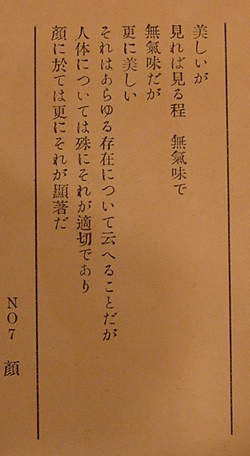 美しいが
見れば見る程　無氣味で
無氣味だが
更に美しい
それはあらゆる存在について云へることだが
人体については殊にそれが適切であり
顔に於ては更にそれが顯著だ
NO7　顔